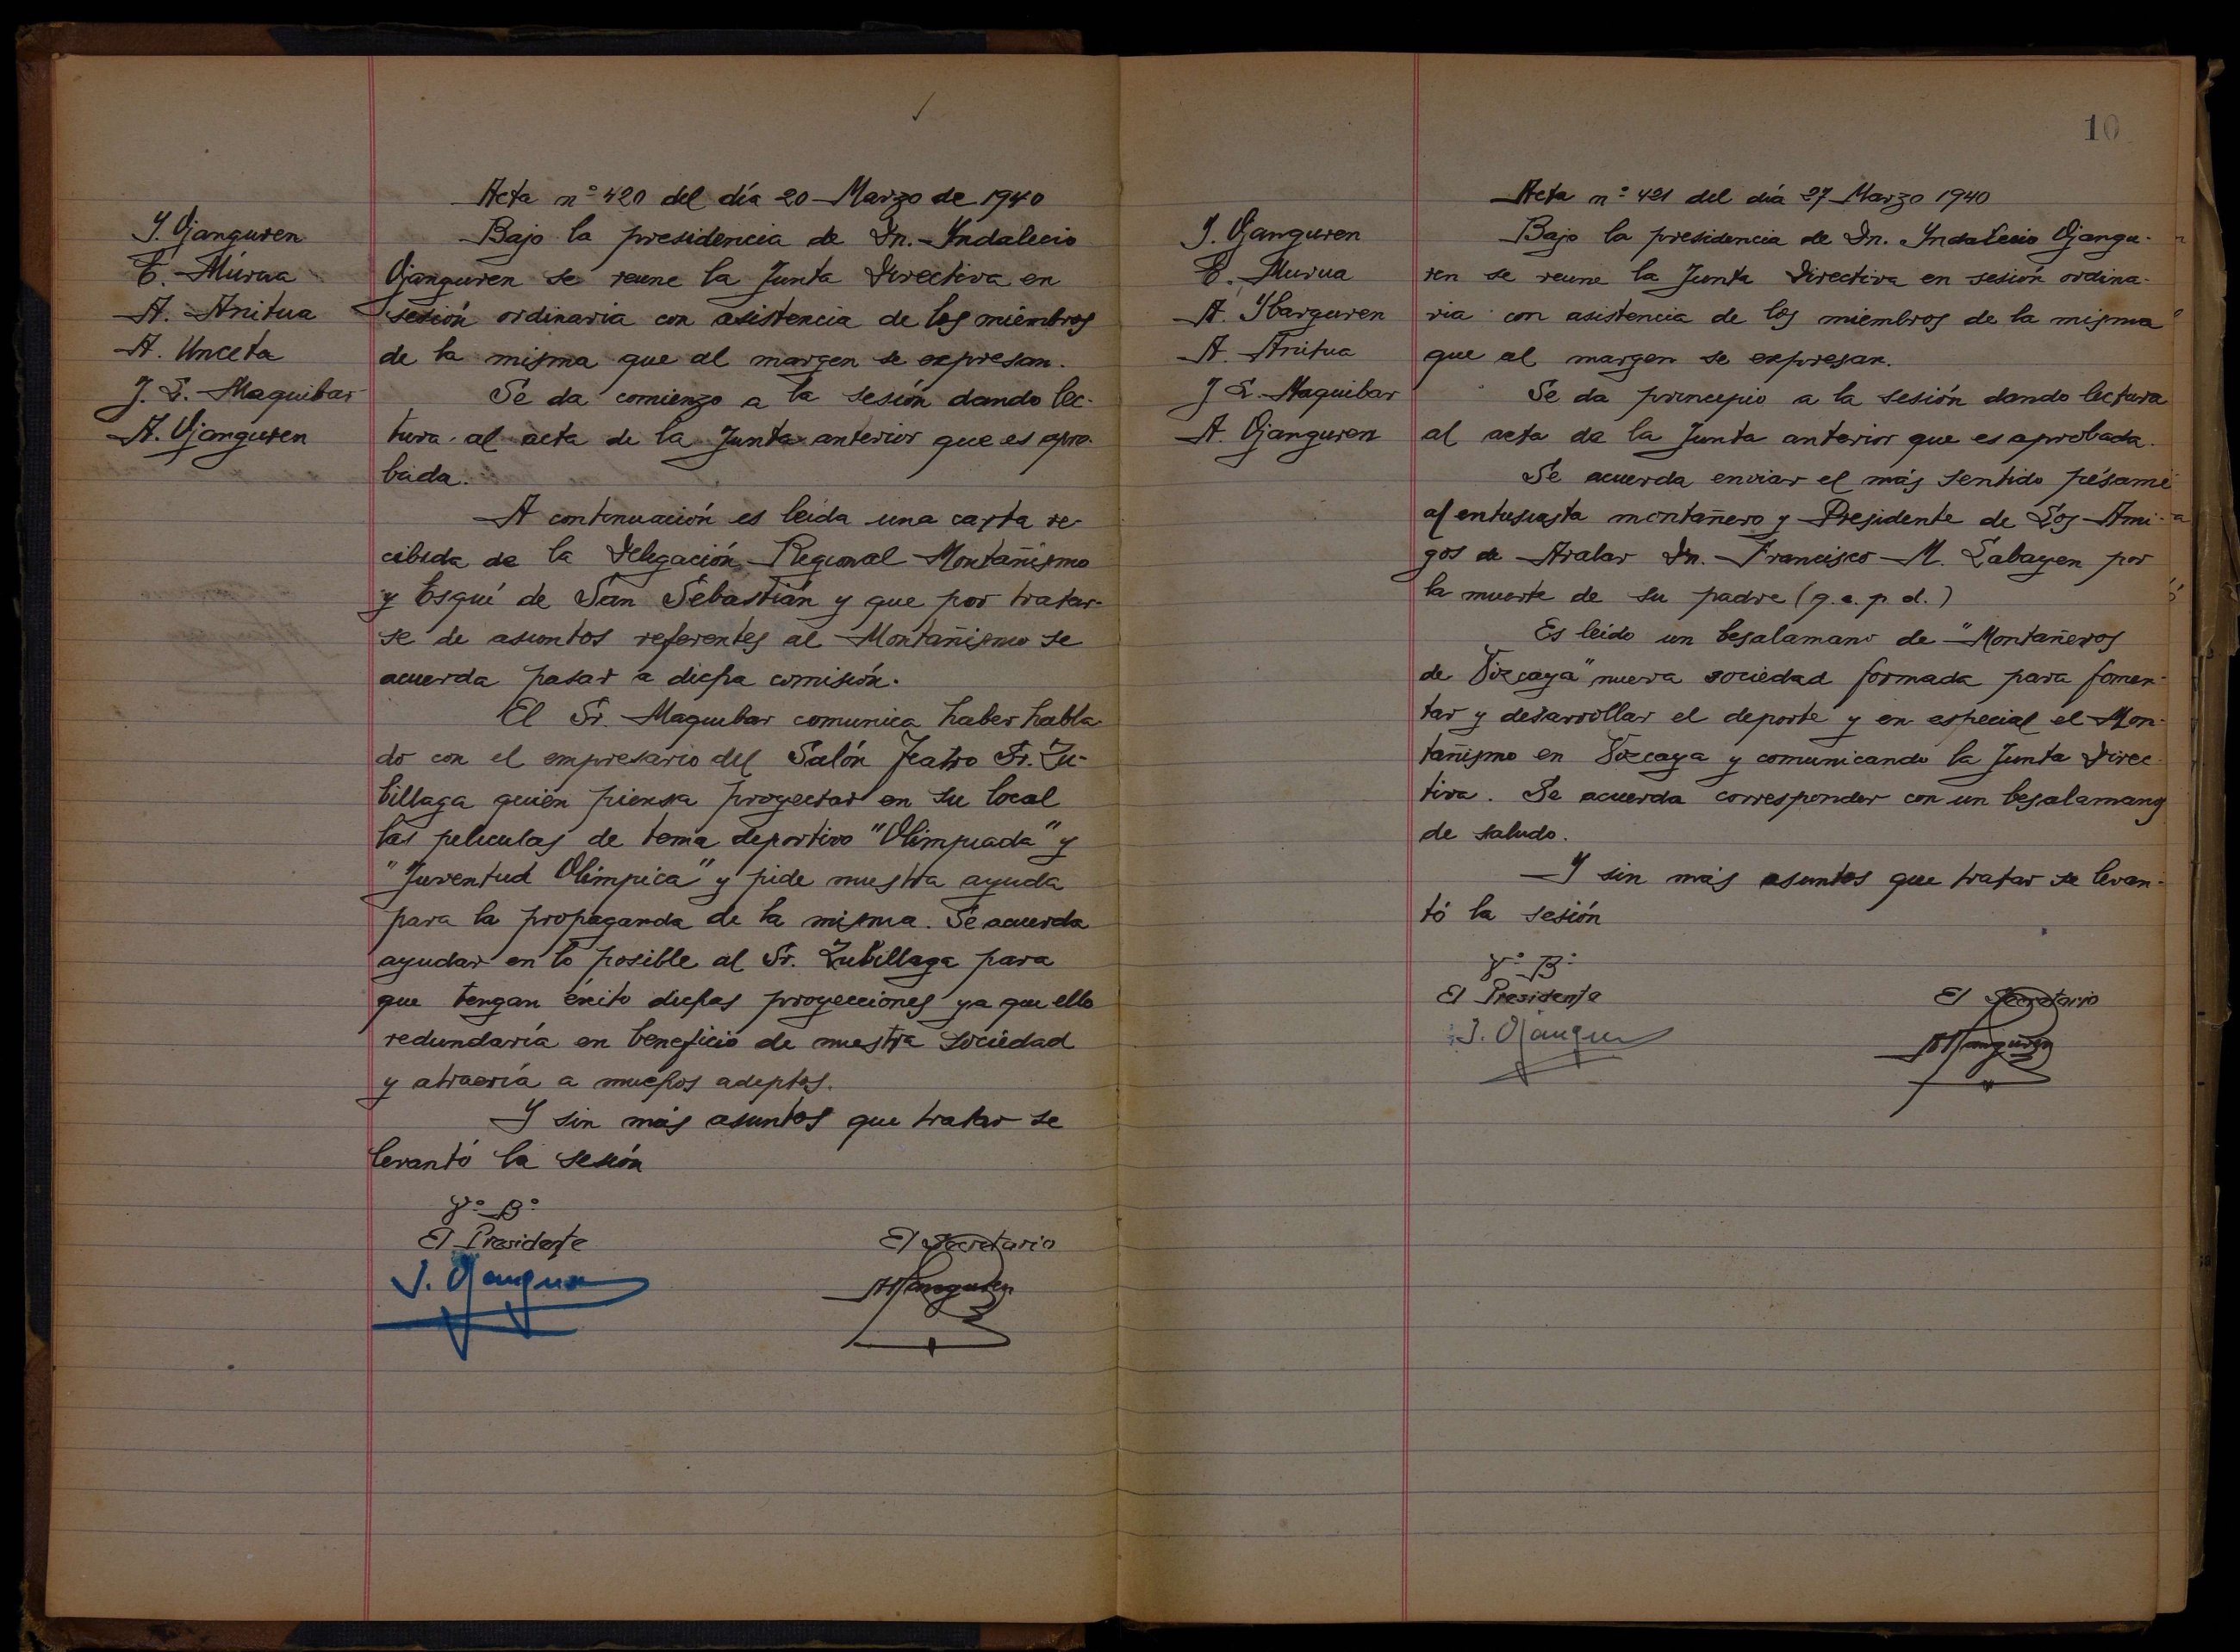 Acta nº 420 del día 20 Marzo de 1940
Y. Ojanguren
E. Múrua
A. Anitua
A. Unceta
J. L. Maquibar
A. Ojanguren
Bajo la presidencia de Dn. Yndalecio
Ojanguren se reune la Junta Directiva en
sesión ordinaria con asistencia de los miembros
de la misma que al margen se expresan.
Se da comienzo a la sesión dando lec-
tura al acta de la Junta anterior que es apro-
bada.
A continuación es leida una carta re-
cibida de la Delegación Regional Montañismo
y Esquí de San Sebastián y que por tratar-
se de asuntos referentes al Montañismo se
acuerda pasar a dicha comisión.
El Sr. Maquibar comunica haber habla
do con el empresario del Salón Teatro Sr. Zu-
billaga quién piensa proyectar en su local
las peliculas de tema deportivo "Olimpiada" y
"Juventud Olímpica" y pide nuestra ayuda
para la propaganda de la misma. Se acuerda
ayudar en lo posible al Sr. Zubillaga para
que tengan éxito dichas proyecciones ya que ello
redundaría en beneficio de nuestra Sociedad
y atraería a muchos adeptos.
Y sin más asuntos que tratar se
levantó la sesión
Vº Bº
El Presidente
El Secretario
J. Ojanguren
A. Ojanguren
10
Acta nº 421 del día 27 Marzo 1940
Y. Ojanguren
E. Murua
A. Ybarguren
A. Anitua
J L. Maquibar
A. Ojanguren
Bajo la presidencia de Dn. Yndalecio Ojangu-
ren se reune la Junta Directiva en sesión ordina-
ria con asistencia de los miembros de la misma
que al margen se expresan.
Se da principio a la sesión dando lectura
al acta de la Junta anterior que es aprobada.
Se acuerda enviar el más sentido pésame
al entusiasta montañero y Presidente de Los Ami-
gos de Aralar Dn. Francisco M. Labayen por
la muerte de su padre (q. e. p. d.)
Es leido un besalamano de "Montañeros
de Vizcaya" nueva sociedad formada para fomen-
tar y desarrollar el deporte y en especial el Mon-
tañismo en Vizcaya y comunicando la Junta Direc-
tiva. Se acuerda corresponder con un besalamano
de saludo.
Y sin más asuntos que tratar se levan-
tó la sesión
Vº Bº
El Presidente
El Secretario
J. Ojanguren
A. Ojanguren